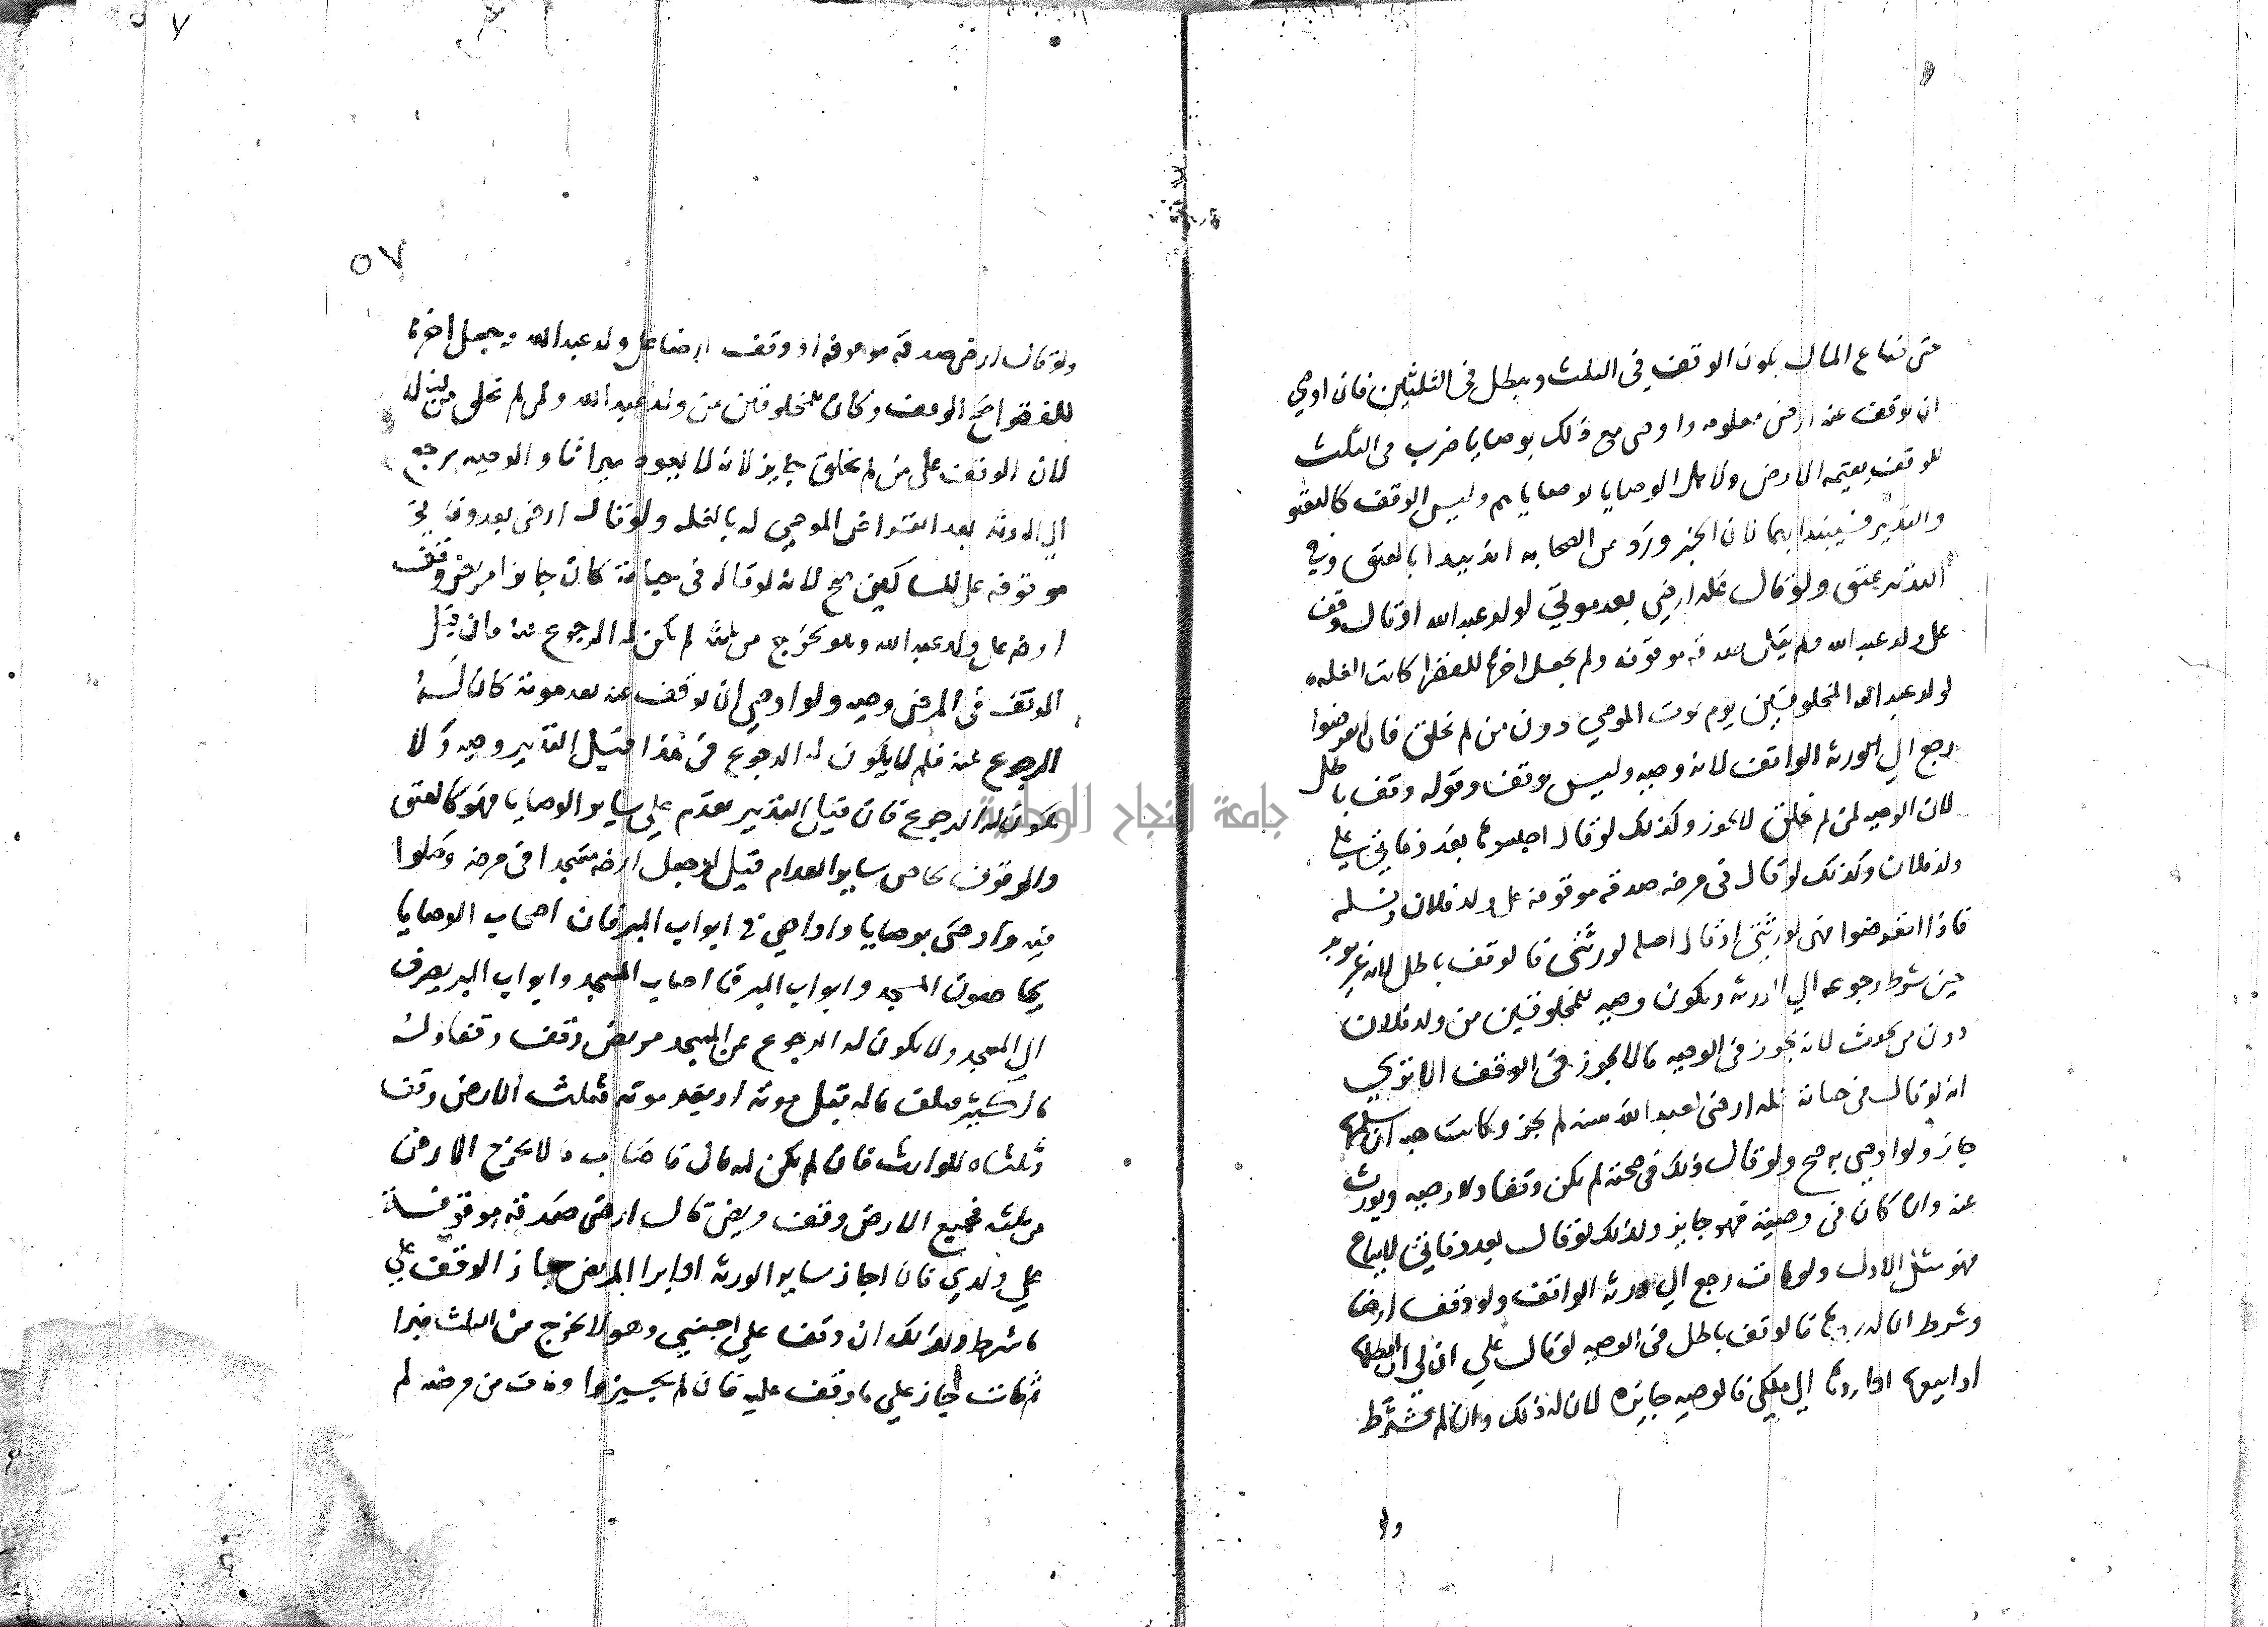 متى ضاع المال يكون الوقف في الثلث ويبطل في الثلثين فان اوصي
ان يوقف عنه ارض معلومه واوصى مع ذلك بوصايا ضرب في الثلث
للوقف بقيمه الارض ولاهل الوصايا بوصاياهم وليس الوقف كالعتق
والتدبير فيبتدا بهما لان الخبر ورد عن الصحابه انه يبدا بالعتق وفي
التدبير عتق ولو قال غله ارضي بعد موتي لولد عبد الله او قال وقف
على ولد عبد الله ولم يقل صدقه موقوفه ولم يجعل اخرها للفقرا كانت الغله
لولد عبد الله المخلوقين يوم موت الموصي دون من لم يخلق فان انقرضوا
رجع الي الورثه الواقف لانه وصيه وليس بوقف وقوله وقف باطل
لان الوصيه لمن لم يخلق لا يجوز وكذلك لو قال احبسوها بعد وفاتي علي
ولد فلان وكذلك لو قال في مرضه صدقه موقوفه على ولد فلان ونسله
فاذا انقرضوا فهي لورثتي او قال اصله لورثتي فالوقف باطل لانه غير موبد
حين شرط رجوعه الي الورثه ويكون وصيه للمخلوقين من ولد فلان
دون من يحدث لانه يجوز في الوصيه ما لا يجوز في الوقف الا تري
انه لو قال في حياته غله ارضي لعبد الله سنه لم يجز وكانت هبه ان سلمها
جاز ولو اوصي به صح ولو قال ذلك في صحته لم يكن وقفا ولا وصيه ويورث
عنه وان كان في وصيته فهو جايز وكذلك لو قال بعد وفاتي لا يباع
فهو مثل الاول ولو مات رجع الي ورثه الواقف ولو وقف ارضا
وشرط ان له ردها فالوقف باطل في الوصيه لو قال علي ان لي ان ابطلها
او ابيعها او اردها الي ملكي فالوصيه جايزه لان له ذلك وان لم يشترط
ولو
٥٧
ولو قال ارضي صدقه موقوفه او وقف ارضا على ولد عبد الله وجعل اخرها
للفقرا صح الوقف وكان للمخلوقين من ولد عبد الله ولمن لم يخلق
لان الوقف على من لم يخلق جايز لانه لا يعود ميراثا والوصيه يرجع
الي الورثه بعد انقراض الموصي له بالغله ولو قال ارضي بعد وفاتي
موقوفه على المساكين صح لانه لو قاله في حياته كان جايزا مريض وقف
ارضه على ولد عبد الله وهو يخرج من ثلثه لم يكن له الرجوع عنه فان قيل
الوقف في المرض وصيه ولو اوصي ان يوقف عنه بعد موته كان له
الرجوع عنه فلم لا يكون له الرجوع في هذا قيل التدبير وصيه ولا
يكون له الرجوع فان قيل التدبير يقدم علي ساير الوصايا فهو كالعتق
والموقوف يحاص ساير قيل لو جعل ارضه مسجدا في مرضه وصلوا
فيه واوصى بوصايا واوصي في ابواب البر فان اصحاب الوصايا
يحاصون المسجد وابواب البر فما اصاب المسجد وابواب البر يصرف
الي المسجد ولا يكون له الرجوع عن المسجد مريض وقف وقفا وله
مال كثير فتلف ماله قبل موته او بعد موته فثلث الارض وقف
وثلثاه للوارث فان لم يكن له مال فاصاب مالا يخرج الارض
من ثلثه فجميع الارض وقف مريض قال ارضي صدقه موقوفه
علي ولدي فان اجاز ساير الورثه او ابرا المريض جاز الوقف علي
ما شرط وكذلك ان وقف علي اجنبي وهو لا يخرج من الثلث فبرا
ثم مات جاز علي ما وقف عليه فان لم يجيزوا ومات من مرضه لم
جامعة النجاح الوطنية